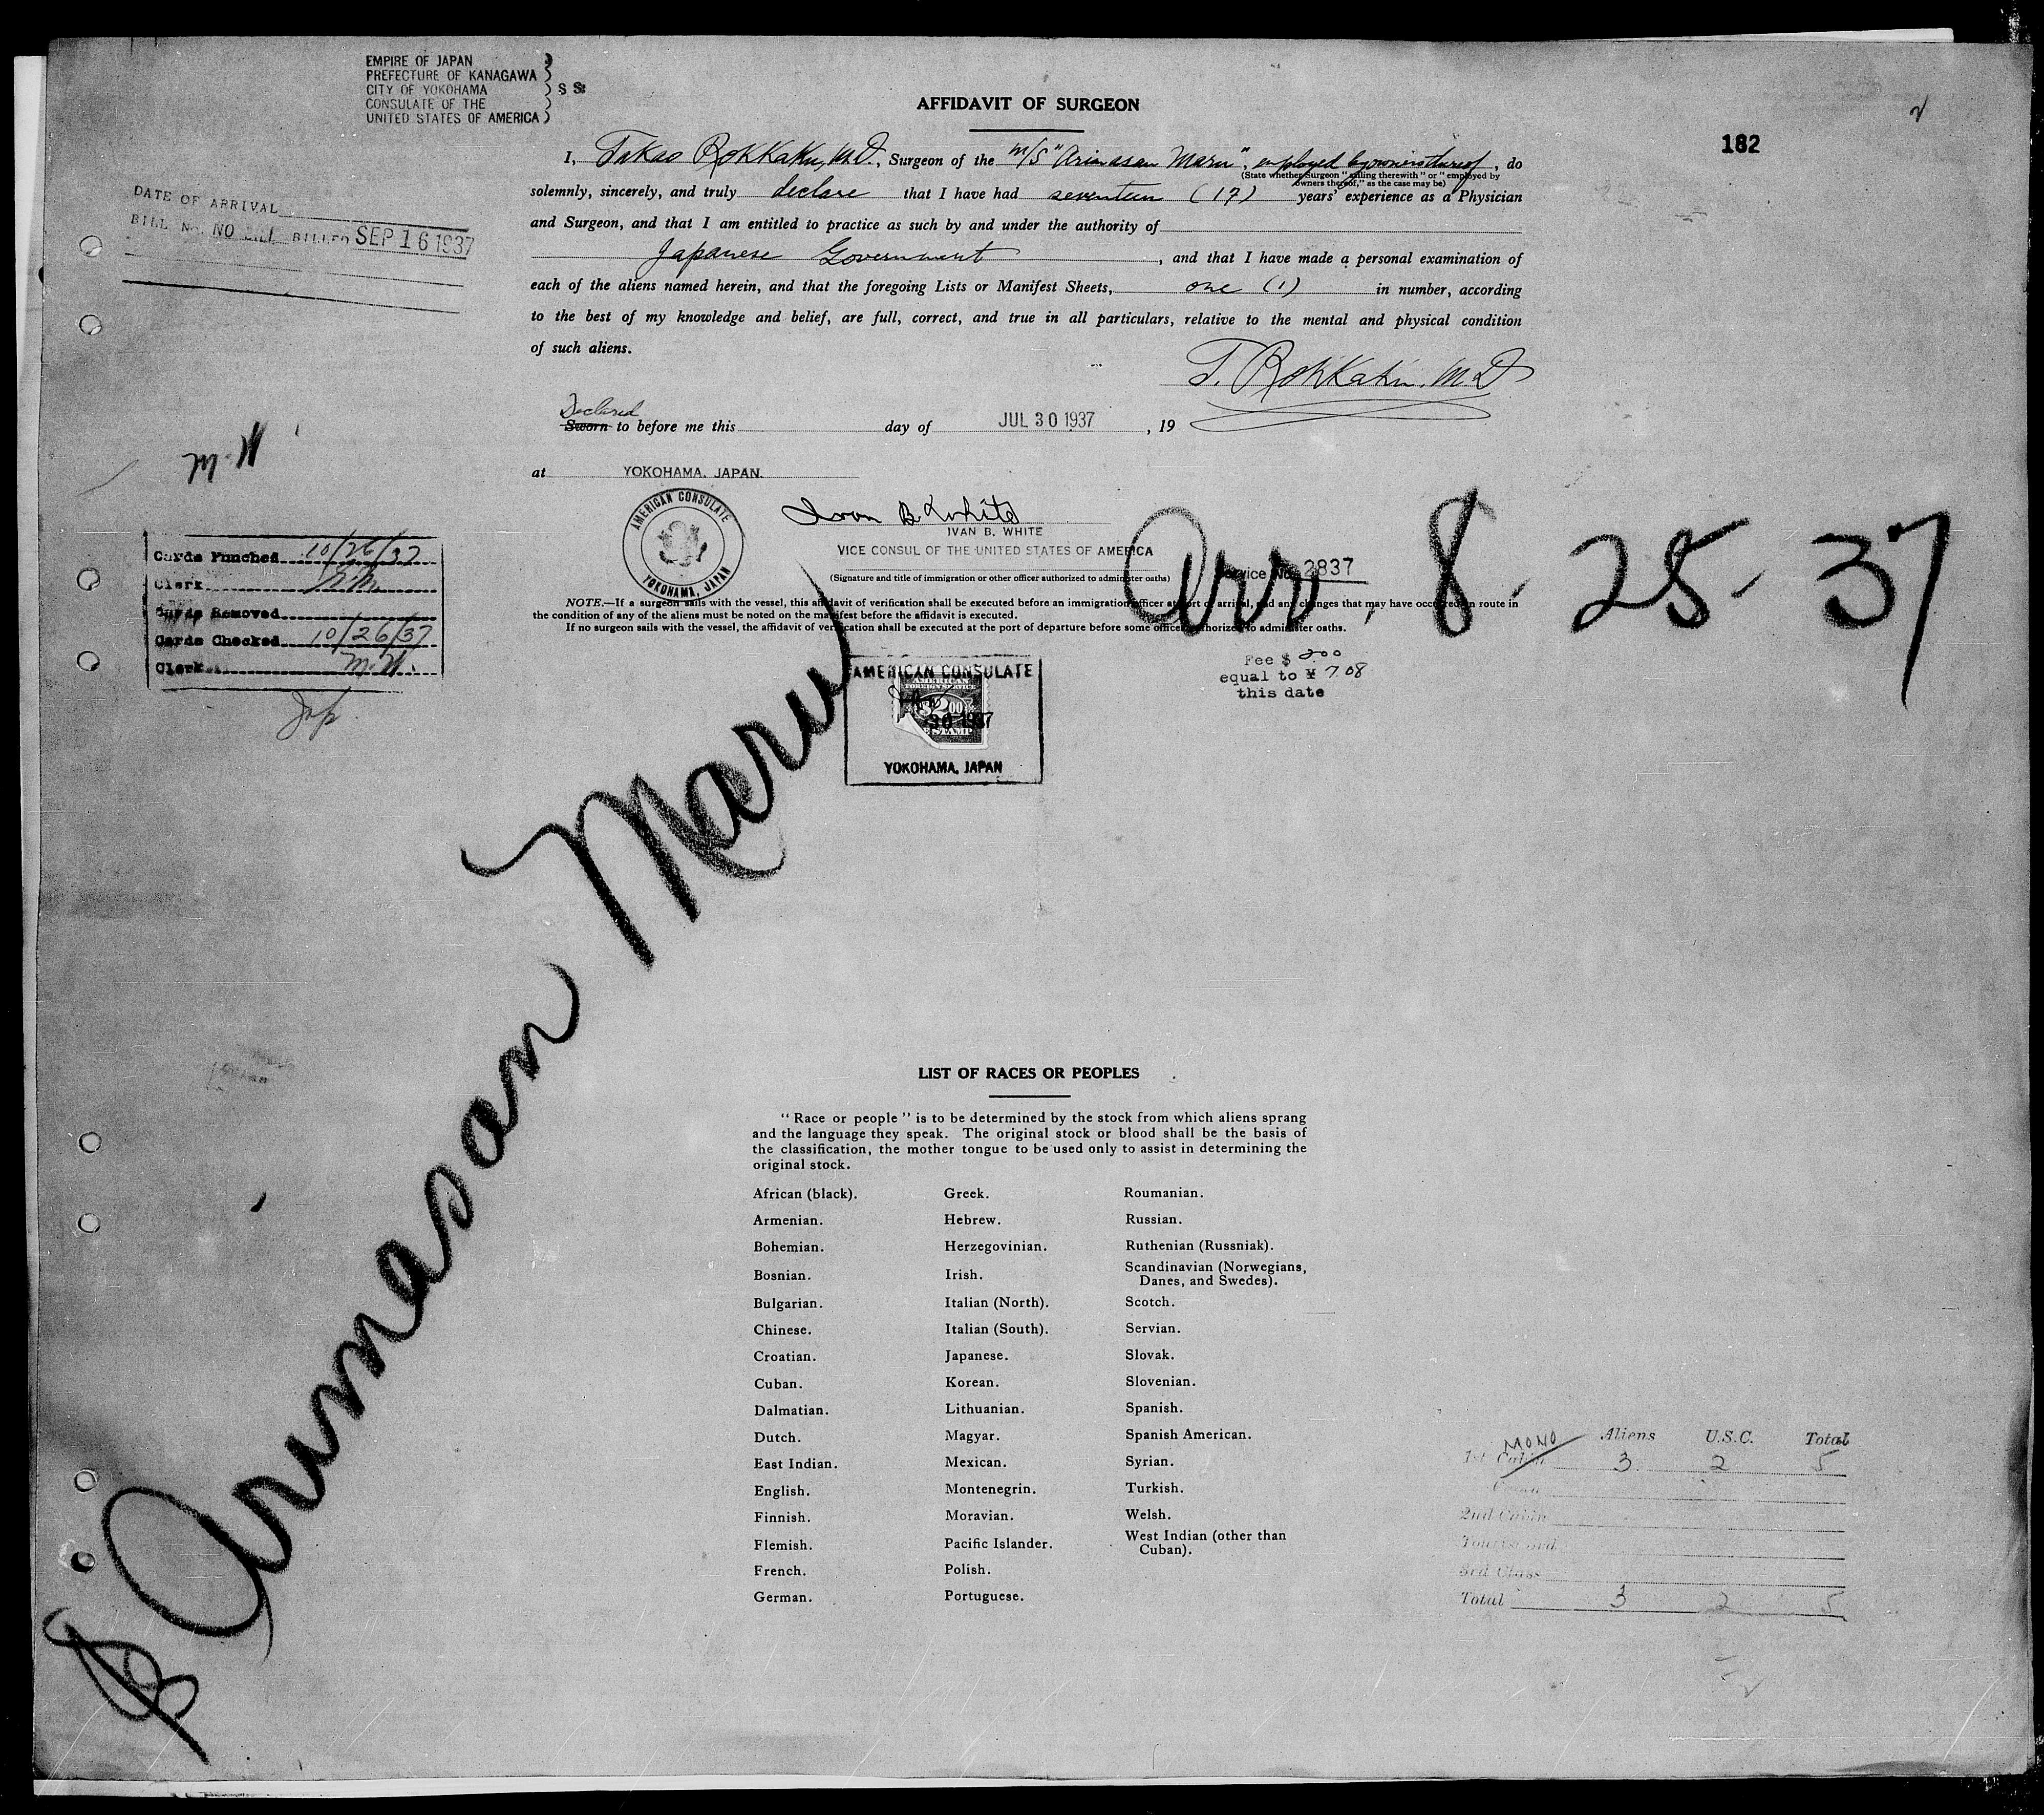 EMPIRE OF JAPAN )
PREFECTURE OF KANAGAWA )
CITY OF YOKOHAMA ) S S:
CONSULATE OF THE )
UNITED STATES OF AMERICA )
AFFIDAVIT OF SURGEON
182
I, Takao Rokkaku, M.D., Surgeon of the M/S "Arimasan Maru", employed by owners thereof, do
(State whether Surgeon "sailing therewith" or "employed by
owners thereof," as the case may be)
solemnly, sincerely, and truly declare that I have had seventeen (17) years' experience as a Physician
and Surgeon, and that I am entitled to practice as such by and under the authority of
Japanese Government, and that I have made a personal examination of
each of the aliens named herein, and that the foregoing Lists or Manifest Sheets, one (1) in number, according
to the best of my knowledge and belief, are full, correct, and true in all particulars, relative to the mental and physical condition
of such aliens.
T. Rokkaku. M.D
DATE OF ARRIVAL
BILL No. NO BILL BILLED SEP 16 1937
Declared
Sworn to before me this day of JUL 30 1937, 19
at YOKOHAMA, JAPAN.
AMERICAN CONSULATE
YOKOHAMA, JAPAN
Ivan B. White
IVAN B. WHITE
VICE CONSUL OF THE UNITED STATES OF AMERICA
(Signature and title of immigration or other officer authorized to administer oaths)
Service No. 2837
Arr. 8-25-37
NOTE.—If a surgeon sails with the vessel, this affidavit of verification shall be executed before an immigration officer at port of arrival, and any changes that may have occurred in route in
the condition of any of the aliens must be noted on the manifest before the affidavit is executed.
If no surgeon sails with the vessel, the affidavit of verification shall be executed at the port of departure before some officer authorized to administer oaths.
M.H
Cards Punched 10/26/37
Clerk
Cards Removed
Cards Checked 10/26/37
Clerk M.H.
Jap.
AMERICAN CONSULATE
AMERICAN
FOREIGN SERVICE
$2.00
30 1937
STAMP
YOKOHAMA, JAPAN
Fee $ 2.00
equal to ¥ 7.08
this date
Arimasan Maru
LIST OF RACES OR PEOPLES
"Race or people" is to be determined by the stock from which aliens sprang
and the language they speak. The original stock or blood shall be the basis of
the classification, the mother tongue to be used only to assist in determining the
original stock.
African (black). Greek. Roumanian.
Armenian. Hebrew. Russian.
Bohemian. Herzegovinian. Ruthenian (Russniak).
Bosnian. Irish. Scandinavian (Norwegians,
Danes, and Swedes).
Bulgarian. Italian (North). Scotch.
Chinese. Italian (South). Servian.
Croatian. Japanese. Slovak.
Cuban. Korean. Slovenian.
Dalmatian. Lithuanian. Spanish.
Dutch. Magyar. Spanish American.
East Indian. Mexican. Syrian.
English. Montenegrin. Turkish.
Finnish. Moravian. Welsh.
Flemish. Pacific Islander. West Indian (other than
Cuban).
French. Polish.
German. Portuguese.
Aliens U.S.C. Total
MONO
1st Cabin 3 2 5
2nd Cabin
3rd Class
Total 3 2 5